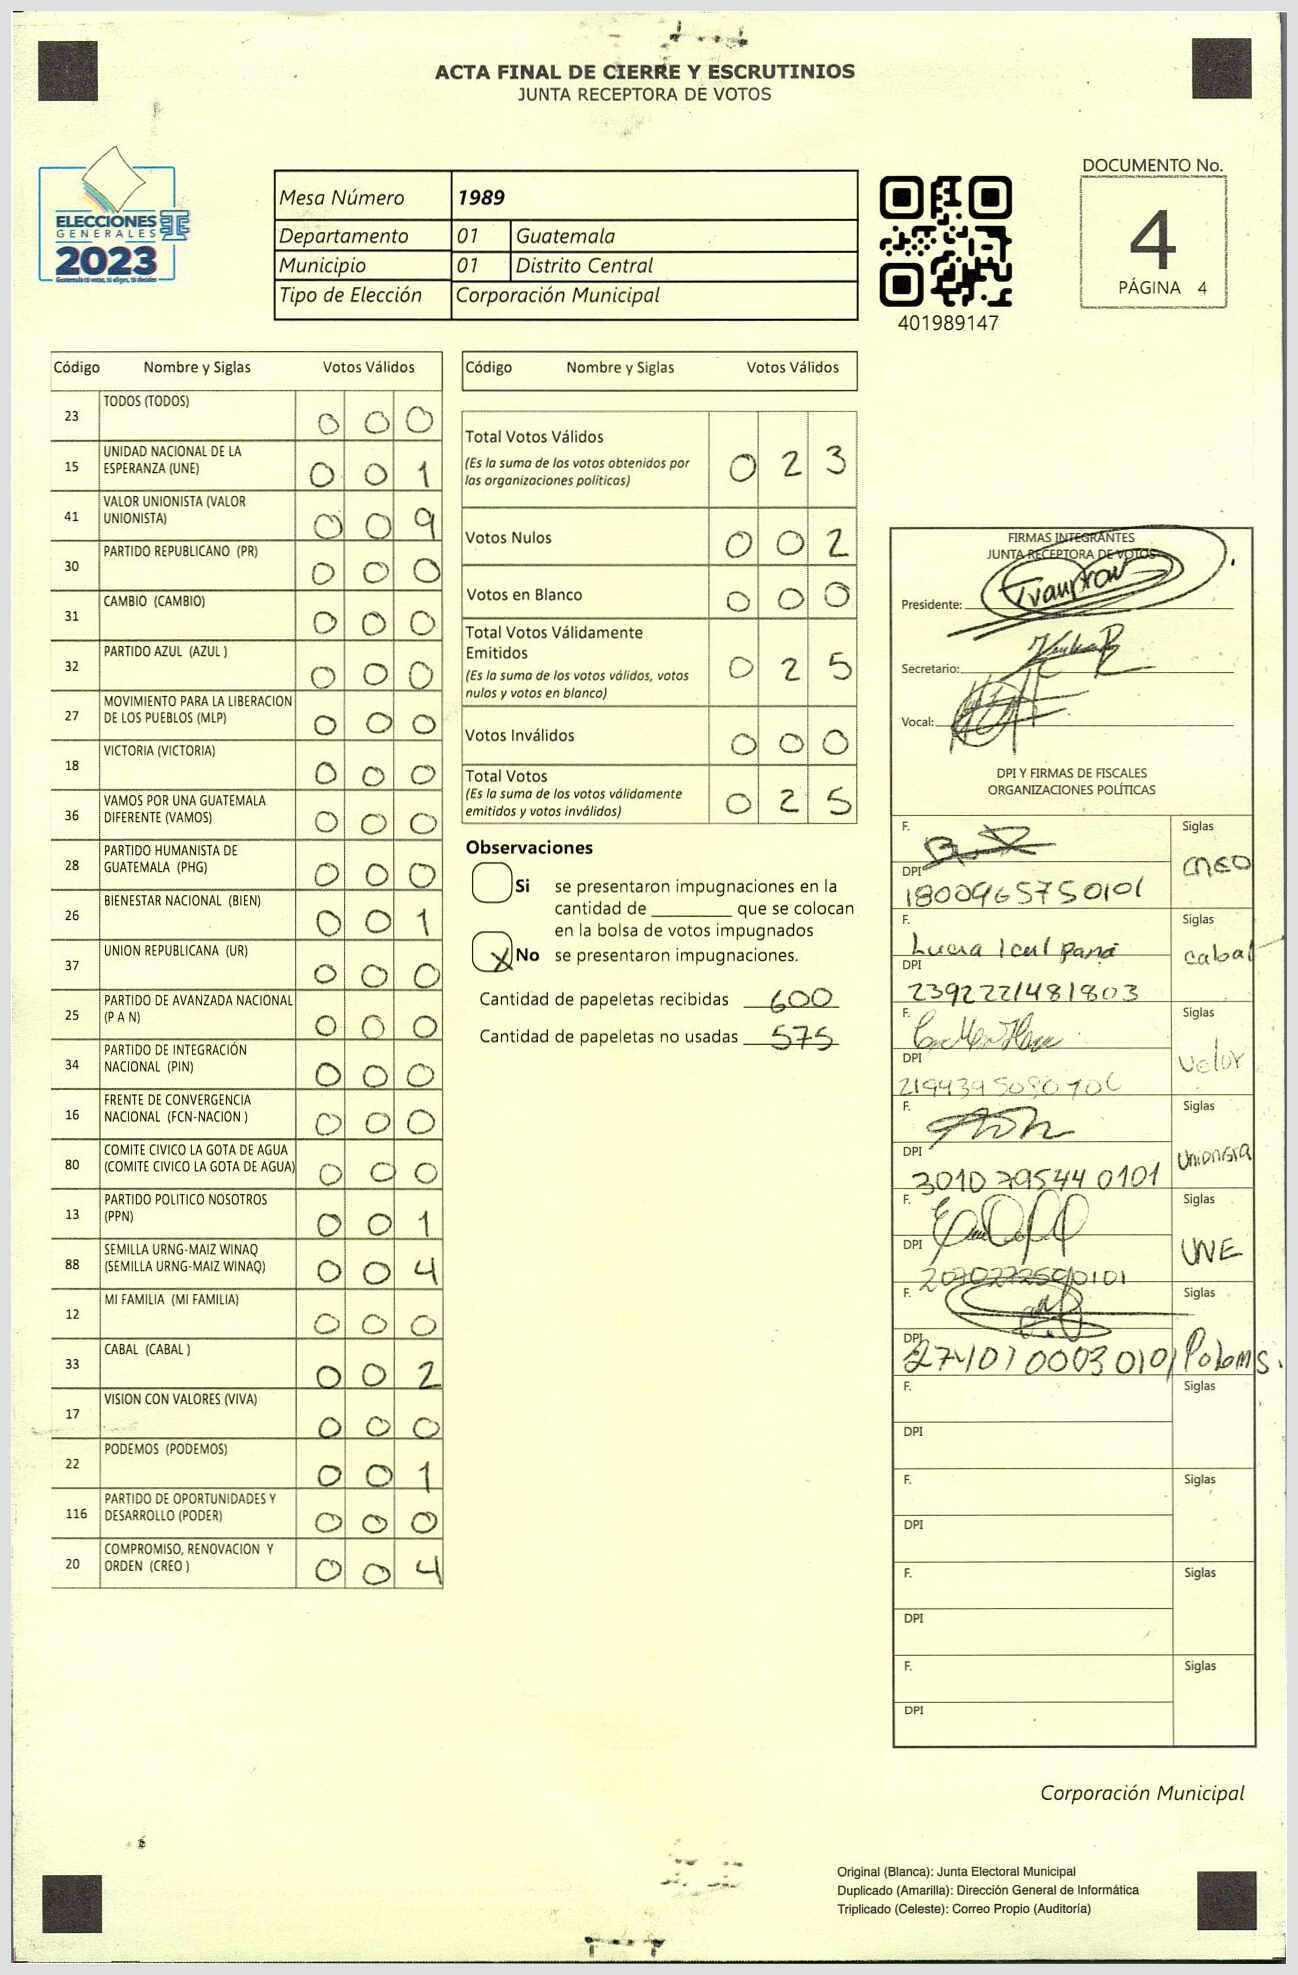 ACTA FINAL DE CIERRE Y ESCRUTINIOS
JUNTA RECEPTORA DE VOTOS
ELECCIONES
GENERALES
2023
Mesa Número 1989
Departamento 01 Guatemala
Municipio 01 Distrito Central
Tipo de Elección Corporación Municipal
401989147
DOCUMENTO No.
4
PÁGINA 4
Código Nombre y Siglas Votos Válidos
23 TODOS (TODOS) 0 0 0
15 UNIDAD NACIONAL DE LA
ESPERANZA (UNE) 0 0 1
41 VALOR UNIONISTA (VALOR
UNIONISTA) 0 0 9
30 PARTIDO REPUBLICANO (PR) 0 0 0
31 CAMBIO (CAMBIO) 0 0 0
32 PARTIDO AZUL (AZUL ) 0 0 0
27 MOVIMIENTO PARA LA LIBERACION
DE LOS PUEBLOS (MLP) 0 0 0
18 VICTORIA (VICTORIA) 0 0 0
36 VAMOS POR UNA GUATEMALA
DIFERENTE (VAMOS) 0 0 0
28 PARTIDO HUMANISTA DE
GUATEMALA (PHG) 0 0 0
26 BIENESTAR NACIONAL (BIEN) 0 0 1
37 UNION REPUBLICANA (UR) 0 0 0
25 PARTIDO DE AVANZADA NACIONAL
(P A N) 0 0 0
34 PARTIDO DE INTEGRACIÓN
NACIONAL (PIN) 0 0 0
16 FRENTE DE CONVERGENCIA
NACIONAL (FCN-NACION ) 0 0 0
80 COMITE CIVICO LA GOTA DE AGUA
(COMITE CIVICO LA GOTA DE AGUA) 0 0 0
13 PARTIDO POLITICO NOSOTROS
(PPN) 0 0 1
88 SEMILLA URNG-MAIZ WINAQ
(SEMILLA URNG-MAIZ WINAQ) 0 0 4
12 MI FAMILIA (MI FAMILIA) 0 0 0
33 CABAL (CABAL ) 0 0 2
17 VISION CON VALORES (VIVA) 0 0 0
22 PODEMOS (PODEMOS) 0 0 1
116 PARTIDO DE OPORTUNIDADES Y
DESARROLLO (PODER) 0 0 0
20 COMPROMISO, RENOVACION Y
ORDEN (CREO ) 0 0 4
Código Nombre y Siglas Votos Válidos
Total Votos Válidos 0 2 3
(Es la suma de los votos obtenidos por
las organizaciones políticas)
Votos Nulos 0 0 2
Votos en Blanco 0 0 0
Total Votos Válidamente
Emitidos 0 2 5
(Es la suma de los votos válidos, votos
nulos y votos en blanco)
Votos Inválidos 0 0 0
Total Votos 0 2 5
(Es la suma de los votos válidamente
emitidos y votos inválidos)
Observaciones
Si se presentaron impugnaciones en la
cantidad de ________ que se colocan
en la bolsa de votos impugnados
X No se presentaron impugnaciones.
Cantidad de papeletas recibidas 600
Cantidad de papeletas no usadas 575
FIRMAS INTEGRANTES
JUNTA RECEPTORA DE VOTOS
Presidente:
Secretario:
Vocal:
DPI Y FIRMAS DE FISCALES
ORGANIZACIONES POLÍTICAS
F. Siglas
DPI
1800965750101
F. Lucia Siglas cabal
DPI
2392221481803
F. Siglas Valor
DPI
F. Siglas Unionista
DPI
3010795440101
F. Siglas UNE
DPI
F. Siglas
DPI
F. Siglas
DPI
F. Siglas
DPI
F. Siglas
DPI
F. Siglas
DPI
Corporación Municipal
Original (Blanca): Junta Electoral Municipal
Duplicado (Amarilla): Dirección General de Informática
Triplicado (Celeste): Correo Propio (Auditoría)